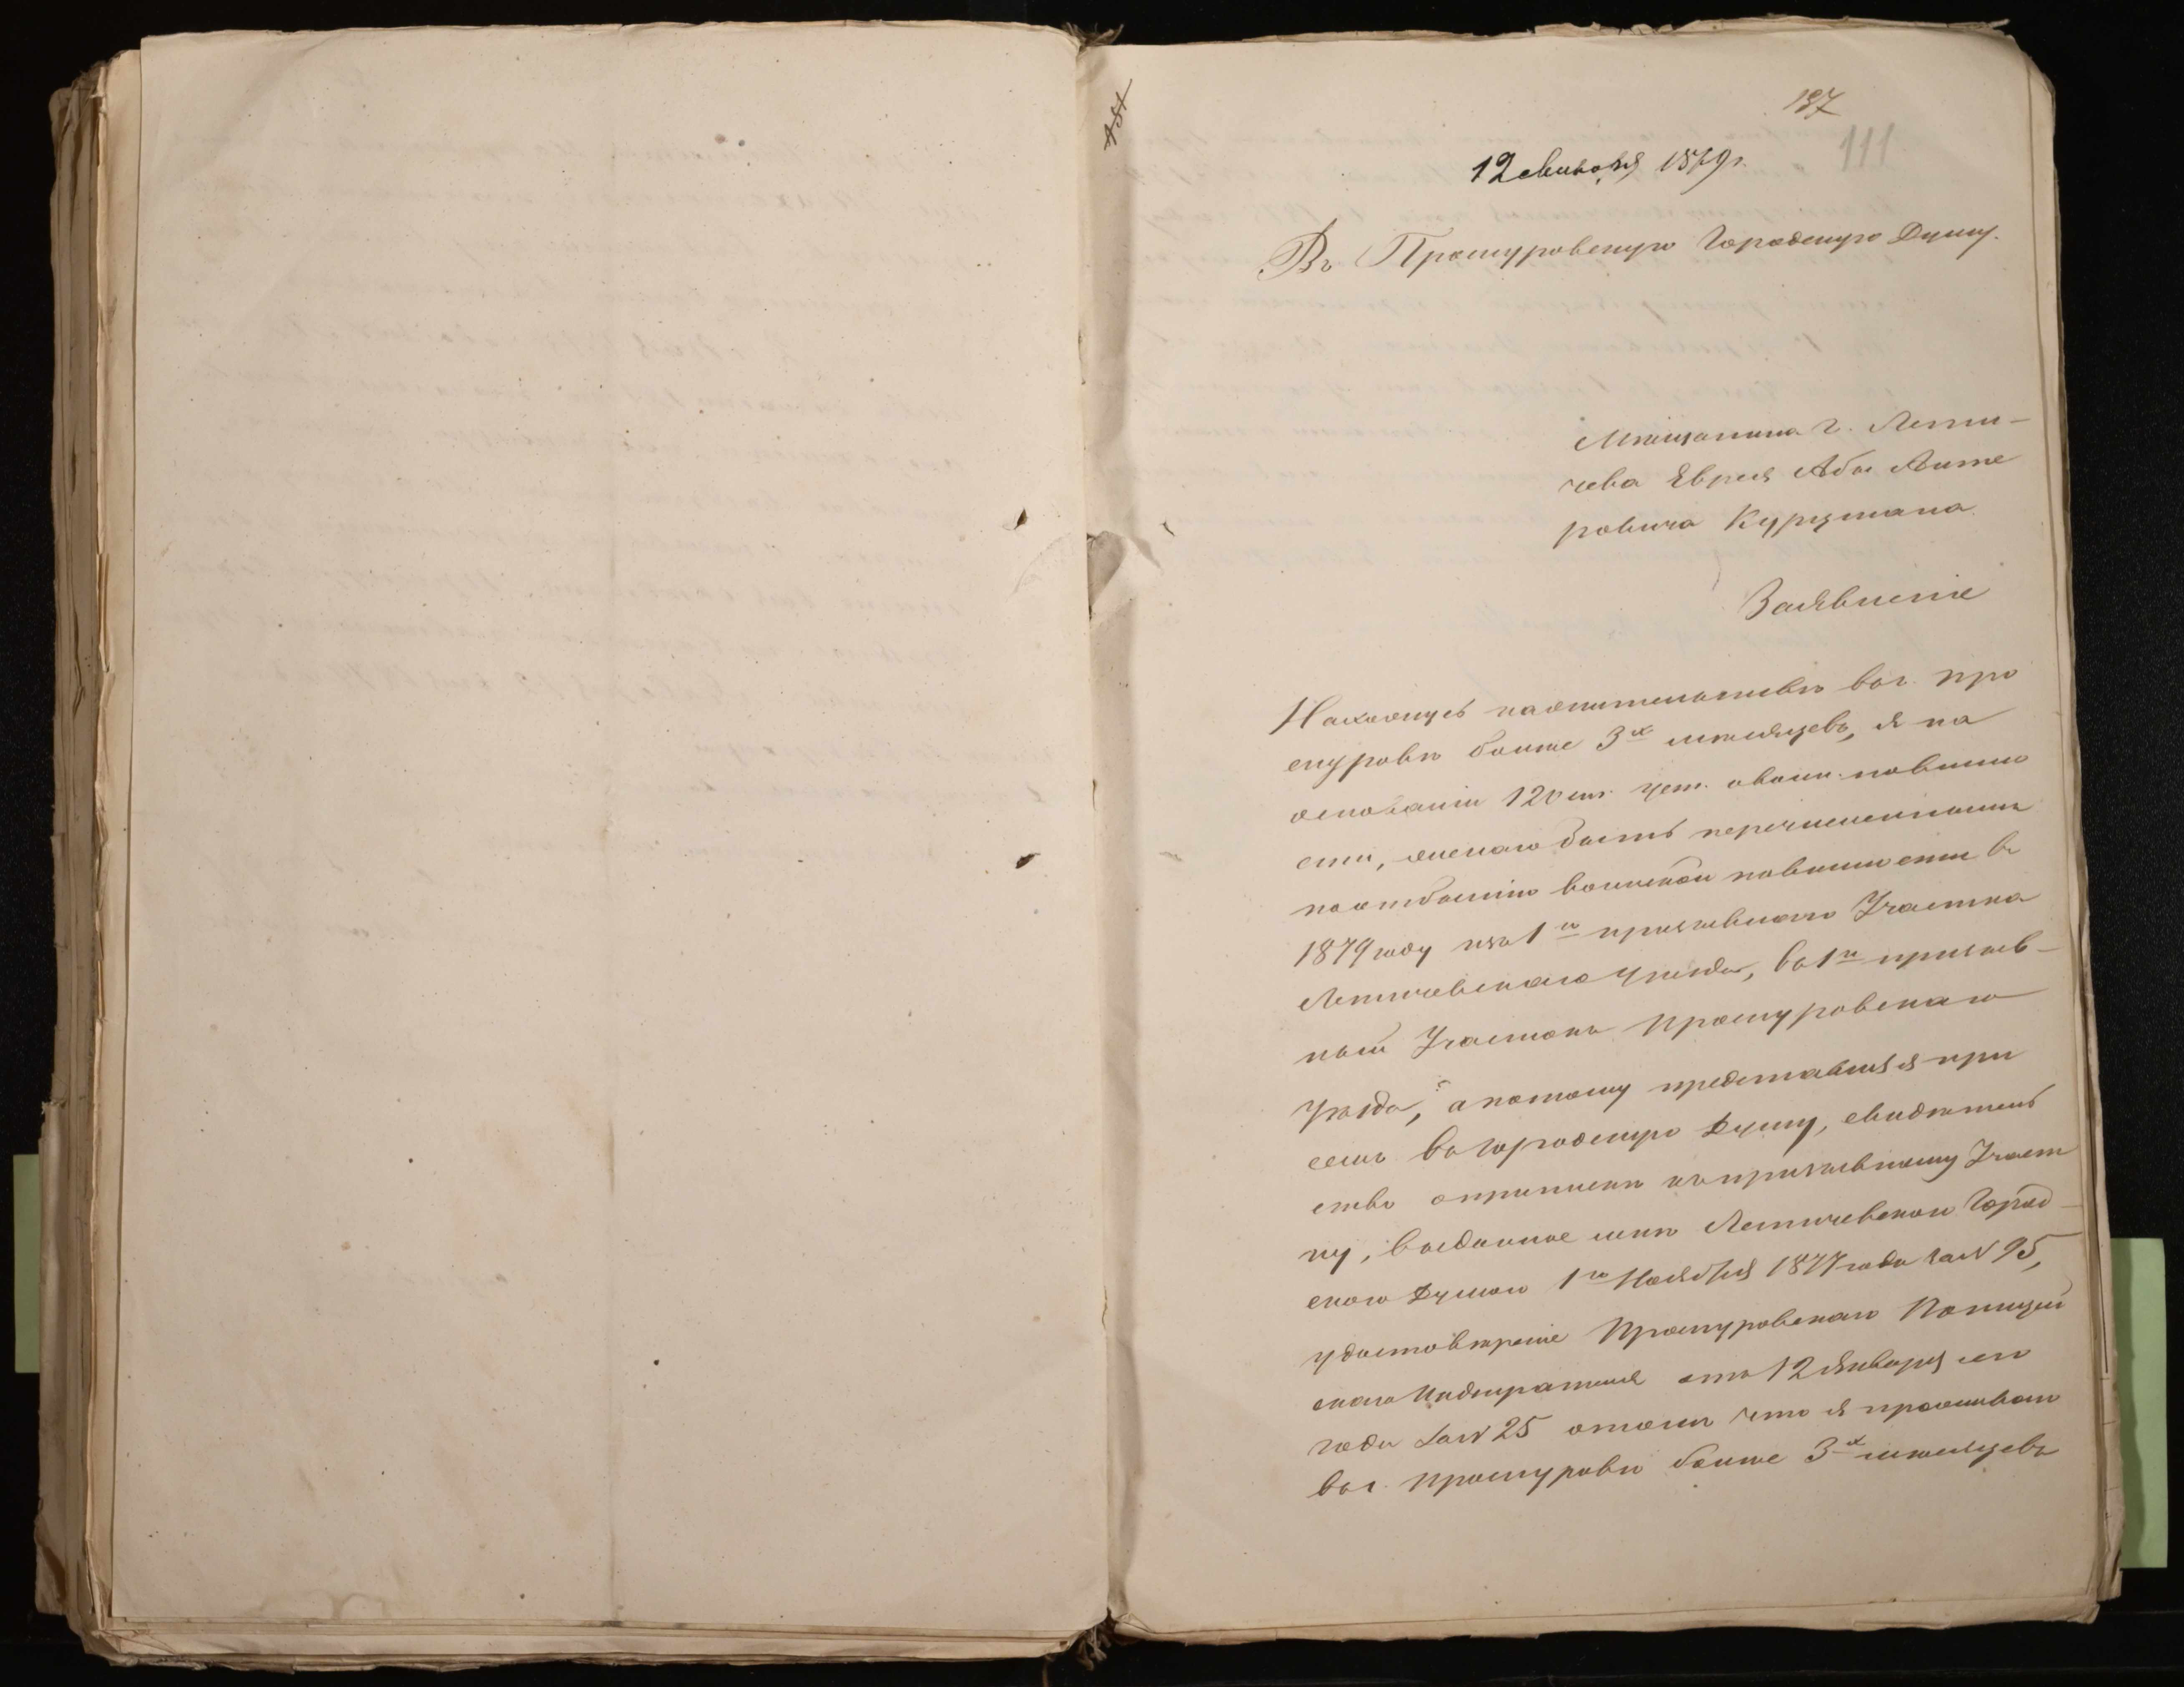 137
111
12 Января 1879 г.
Въ Проскуровскую Городскую Думу.
Мѣщанина г. Лети-
чева Еврея Абы Лите
ровича Курцмана
Заявленіе
Находясь на жительствѣ въ г. Про
скуровѣ болѣе 3х мѣсяцевъ, я на
основаніи 120 ст. уст. о воин. повинно
сти, желаю быть перечисленнымъ
по отбытію воинской повинности въ
1879 году изъ 1го призывнаго Участка
Летичевскаго уѣзда, въ 1й призыв-
ный Участокъ Проскуровскаго
уѣзда, а потому представляя при
семъ въ Городскую Думу, свидѣтель
ство о припискѣ къ призывному Участ
ку, выданное мнѣ Летичевскою Город-
скою Думою 1го Ноября 1877 года за N 95,
удостовѣреніе Проскуровскаго Полицей
скаго Надзирателя отъ 12 Января сего
года за N 25 о томъ что я проживаю
въ г. Проскуровѣ болѣе 3х мѣсяцевъ